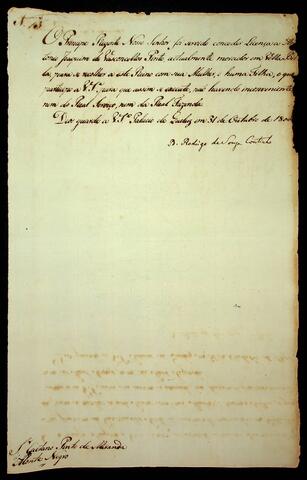 N. 13
O Principe Regente Nosso Senhor, foi servido conceder Licença a
Joaquim de Vasconcellos Pinto actualmente morador em Villa
para se recolher a este Reino com sua Mulher, e huma Filha, o que
participo a V. S.ª para que assim o execute, não havendo inconveniente,
nem do Real Serviço, nem da Real Fazenda.
Deos guarde a V. S.ª Palacio de Queluz em 31 de Outubro de
D. Rodrigo de Souza Coutinho
S.r Caetano Pinto de Miranda
Monte Negro